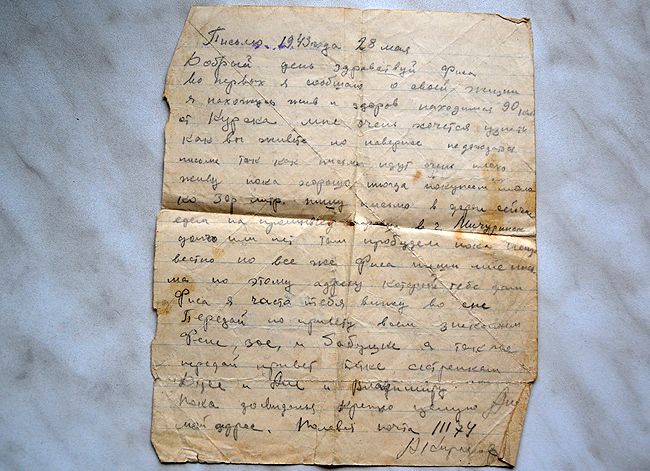 Письмо 1943 года 28 мая
Добрый день здравствуй Фиса
во первых я сообщаю о своей жизни
я нахожусь жив и здоров находимся 90 клм
от Курска мне очень хочется узнать
как вы живёте но наверное не дождаться
письма так как письма идут очень плохо
живу пока хорошо иногда покупаем моло
ко 30р литр. пишу письмо в сейчас
едем на в г. Мичуринск
долго или нет там пробудем пока неиз
вестно но все же Фиса пиши мне пись
ма по этому адресу который тебе дам
Фиса я часто тебя вижу во сне
Передай по привету всем знакомым
Фене, зое, и бабушке я также
передай привет сестренкам
и и Владимиру
Пока досвиданья крепко целую
мой адрес. Полевая почта 11174